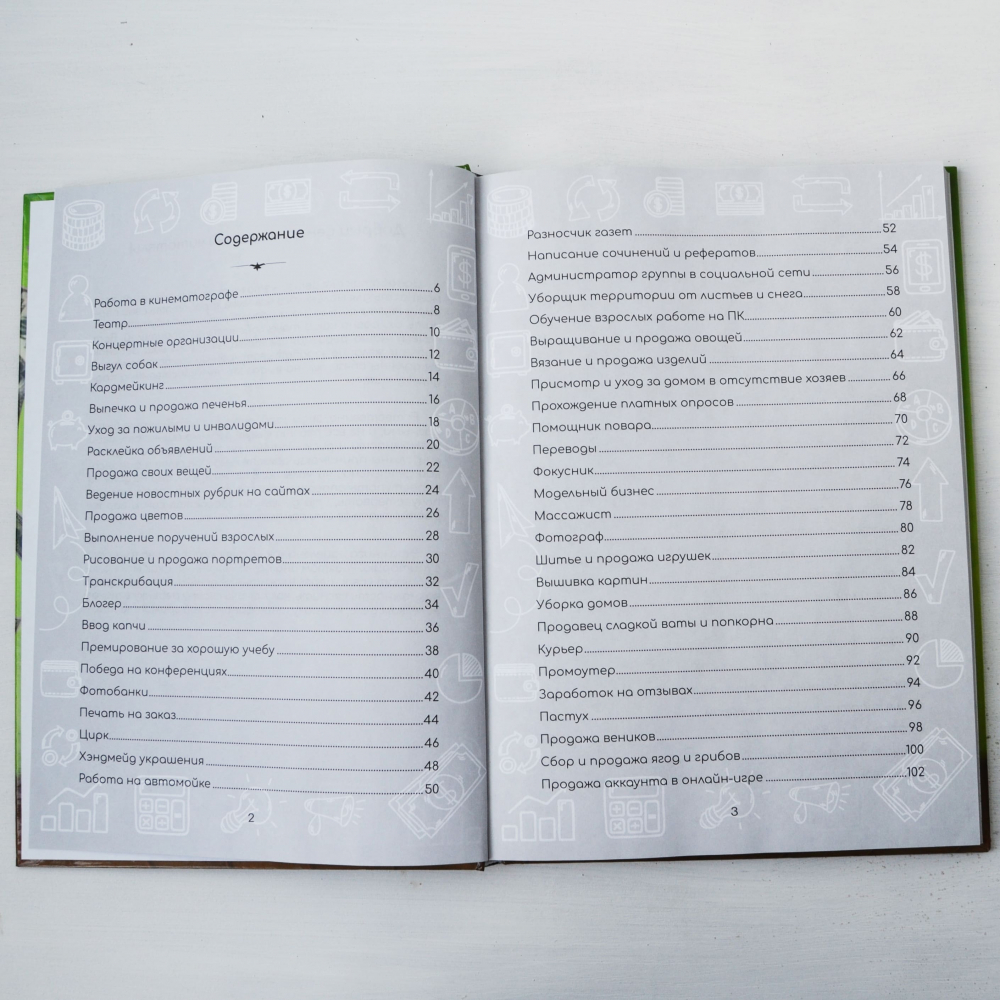 Содержание
Работа в кинематографе 6
Театр 8
Концертные организации 10
Выгул собак 12
Кардмейкинг 14
Выпечка и продажа печенья 16
Уход за пожилыми и инвалидами 18
Расклейка объявлений 20
Продажа своих вещей 22
Ведение новостных рубрик на сайтах 24
Продажа цветов 26
Выполнение поручений взрослых 28
Рисование и продажа портретов 30
Транскрибация 32
Блогер 34
Ввод капчи 36
Премирование за хорошую учебу 38
Победа на конференциях 40
Фотобанки 42
Печать на заказ 44
Цирк 46
Хэндмейд украшения 48
Работа на автомойке 50
2
Разносчик газет 52
Написание сочинений и рефератов 54
Администратор группы в социальной сети 56
Уборщик территории от листьев и снега 58
Обучение взрослых работе на ПК 60
Выращивание и продажа овощей 62
Вязание и продажа изделий 64
Присмотр и уход за домом в отсутствие хозяев 66
Прохождение платных опросов 68
Помощник повара 70
Переводы 72
Фокусник 74
Модельный бизнес 76
Массажист 78
Фотограф 80
Шитье и продажа игрушек 82
Вышивка картин 84
Уборка домов 86
Продавец сладкой ваты и попкорна 88
Курьер 90
Промоутер 92
Заработок на отзывах 94
Пастух 96
Продажа веников 98
Сбор и продажа ягод и грибов 100
Продажа аккаунта в онлайн-игре 102
3